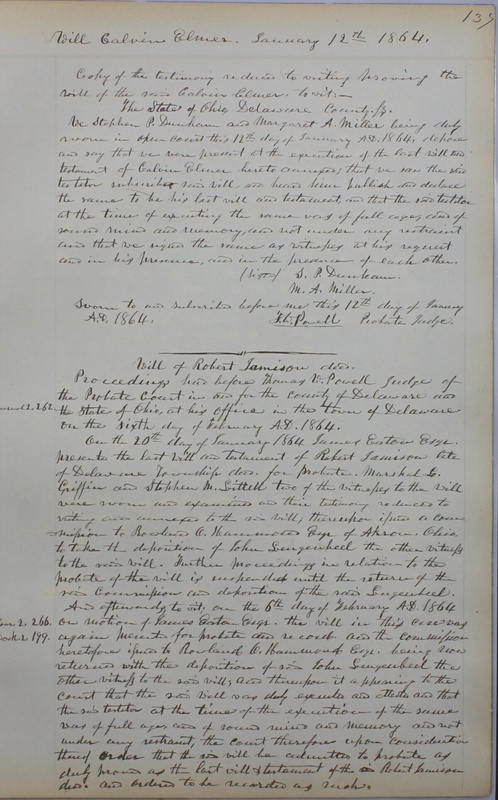 137
Will Calvin Elmer. January 12th 1864.
Copy of the testimony reduced to writing proving the
will of the said Calvin Elmer. to vit:—
The State of Ohio Delaware County. ss.
We Stephen P. Dunham and Margaret A. Miller being duly
sworn in open court this 12th day of January A.D. 1864, depose
and say that we were present at the execution of the last will and
testament of Calvin Elmer hereto annexed; that we saw the said
testator subscribe said will and heard him publish and declare
the same to be his last will and testament and that the said testator
at the time of executing the same was of full age, and of
sound mind and memory, and not under any restraint
and that we signed the same as witnesses at his request
and in his presence, and in the presence of each other.
(Signed) S. P. Dunham.
M. A. Miller.
Sworn to and subscribed before me this 12th day of January
A.D. 1864. T.W. Powell Probate Judge.
Will of Robert Jamison decd.
Proceedings had before Thomas W. Powell Judge of
the Probate Court in and for the county of Delaware and
the State of Ohio, at his office in the town of Delaware
on the sixth day of February A.D. 1864.
2. 262
On the 20th day of January 1864 James Eaton Esqr.
presents the last will and testament of Robert Jamison late
of Delaware Township decd. for probate. Marshal L.
Griffin and Stephen M. Littell two of the witnesses to the will
were sworn and examined and their testimony reduced to
writing and annexed to the said will; thereupon issued a com
mission to Rowland O. Hammond Esqr of Akron Ohio
to take the deposition of John Lugenbeel the other witness
to the said will. Further proceedings in relation to the
probate of the will is suspended until the return of the
said Commission and deposition of the said Lugenbeel.
And afterwards to vit, on the 6th day of February A.D. 1864
2. 266.
2 199.
on motion of James Eaton Esqr. the will in this case was
again presented for probate and record. and the commission
heretofore issued to Rowland O. Hammond Esqr. being now
returned with the deposition of said John Lugenbeel the
other witness to the said will; And thereupon it appearing to the
court that the said will was duly executed and attested and that
the said testator at the time of the execution of the same
was of full age, and of sound mind and memory and not
under any restraint, the court therefore upon consideration
thereof order that the said will be admitted to probate as
duly proved as the last will & testament of the said Robert Jamison
decd. and ordered to be recorded as such.